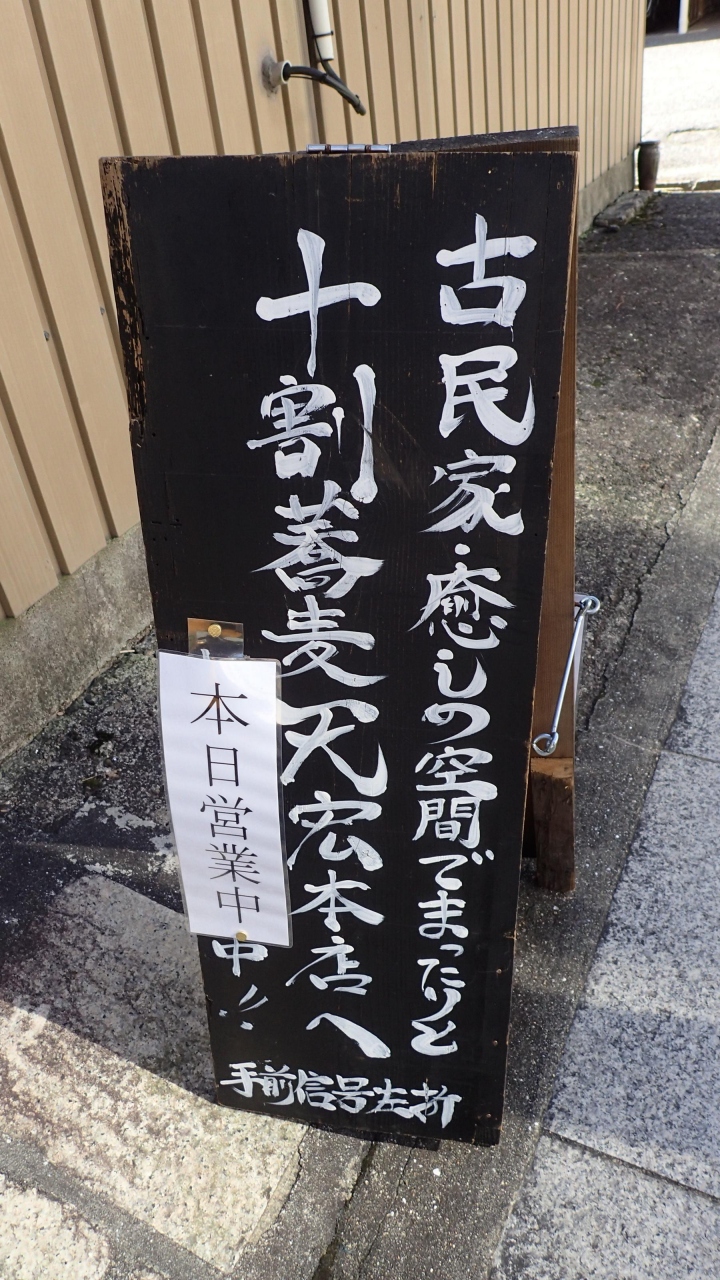 古民家・癒しの空間でまったりと
十割蕎麦天宏本店へ
本日営業中
中!!
手前信号左折